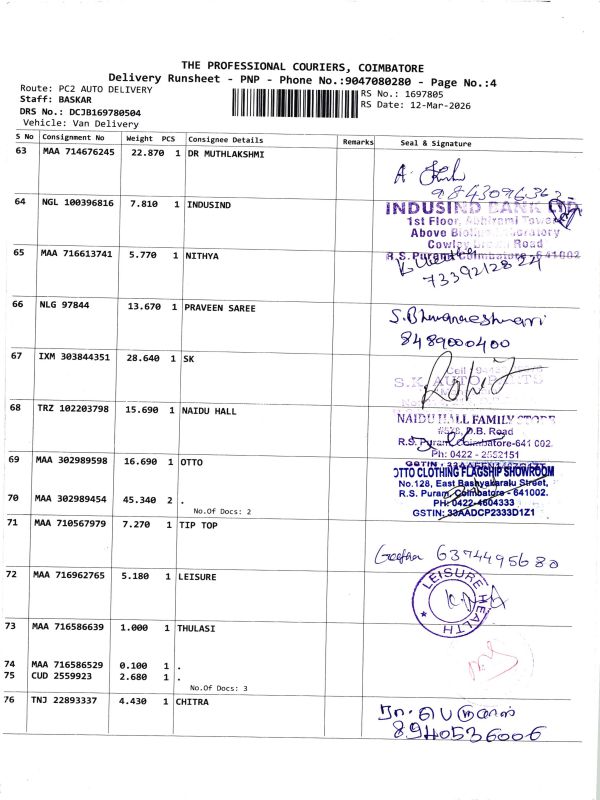 THE PROFESSIONAL COURIERS, COIMBATORE
Delivery Runsheet - PNP - Phone No.:9047080280 - Page No.:4
Route: PC2 AUTO DELIVERY
RS No.: 1697805
Staff: BASKAR
RS Date: 12-Mar-2026
DRS No.: DCJB169780504
Vehicle: Van Delivery
S No Consignment No Weight PCS Consignee Details Remarks Seal & Signature
63 MAA 714676245 22.870 1 DR MUTHLAKSHMI
A.
9843096363
64 NGL 100396816 7.810 1 INDUSIND
INDUSIND BANK
1st Floor, Abhirami Tower
Above Laboratory
Cowley Brown Road
R.S.Puram Coimbatore - 641002
65 MAA 716613741 5.770 1 NITHYA
7339212824
66 NLG 97844 13.670 1 PRAVEEN SAREE
S.Bhuvaneshwari
8489000400
67 IXM 303844351 28.640 1 SK
S.K. AUTO
68 TRZ 102203798 15.690 1 NAIDU HALL
NAIDU HALL FAMILY STORE
D.B. Road
R.S.Puram, Coimbatore-641 002.
Ph: 0422 - 2552151
69 MAA 302989598 16.690 1 OTTO
OTTO CLOTHING FLAGSHIP SHOWROOM
No.128, East Bashyakaralu Street,
R.S. Puram, Coimbatore - 641002.
PH:0422-4604333
GSTIN: 33AADCP2333D1Z1
70 MAA 302989454 45.340 2 .
No.Of Docs: 2
71 MAA 710567979 7.270 1 TIP TOP
Geetha 6374495680
72 MAA 716962765 5.180 1 LEISURE
LEISURE HEALTH
73 MAA 716586639 1.000 1 THULASI
74 MAA 716586529 0.100 1 .
75 CUD 2559923 2.680 1 .
No.Of Docs: 3
76 TNJ 22893337 4.430 1 CHITRA
8940536006